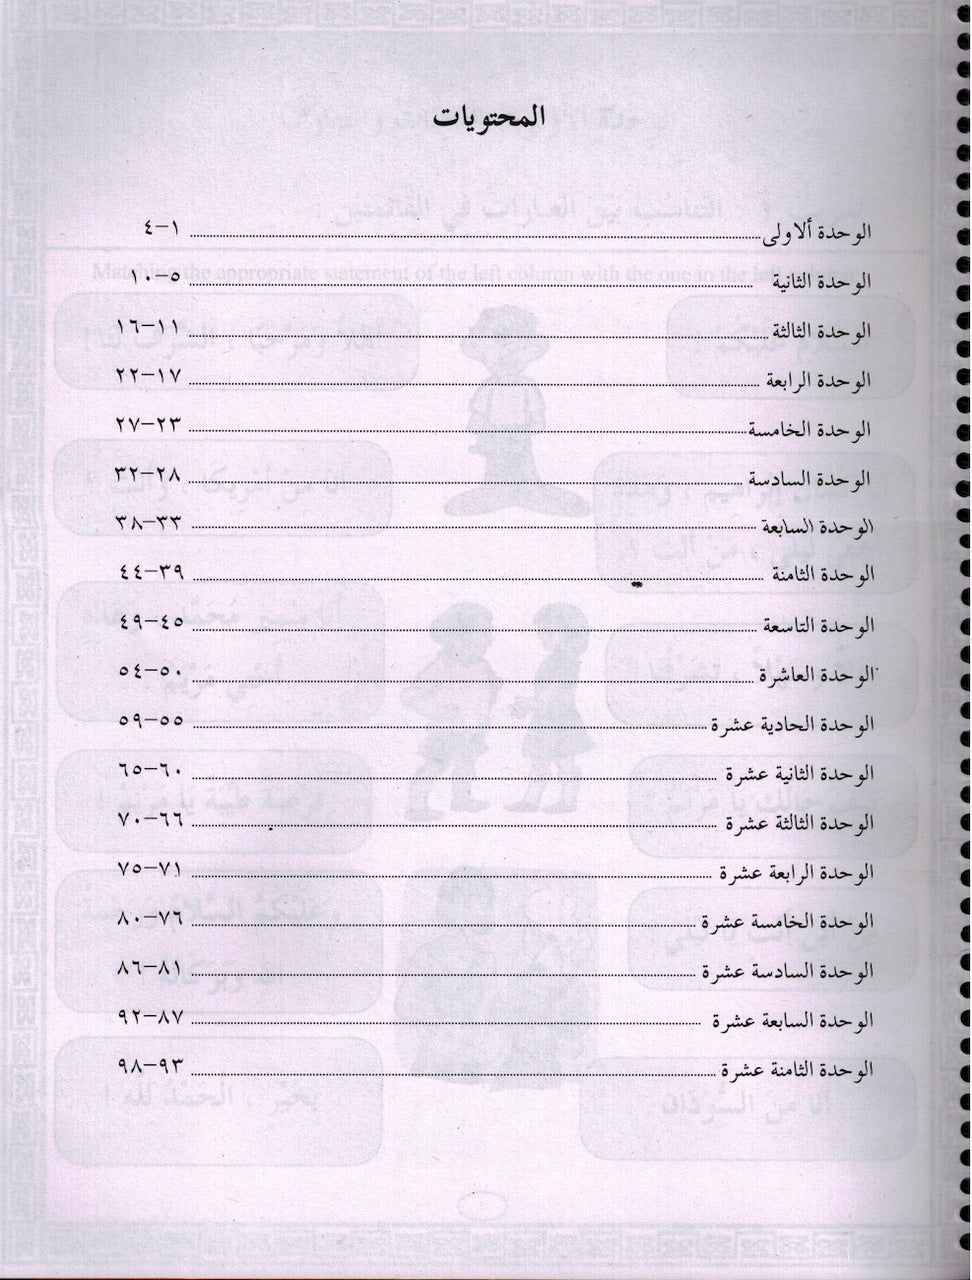 المحتويات
الوحدة ألاولى ١-٤
الوحدة الثانية ٥-١٠
الوحدة الثالثة ١١-١٦
الوحدة الرابعة ١٧-٢٢
الوحدة الخامسة ٢٣-٢٧
الوحدة السادسة ٢٨-٣٢
الوحدة السابعة ٣٣-٣٨
الوحدة الثامنة ٣٩-٤٤
الوحدة التاسعة ٤٥-٤٩
الوحدة العاشرة ٥٠-٥٤
الوحدة الحادية عشرة ٥٥-٥٩
الوحدة الثانية عشرة ٦٠-٦٥
الوحدة الثالثة عشرة ٦٦-٧٠
الوحدة الرابعة عشرة ٧١-٧٥
الوحدة الخامسة عشرة ٧٦-٨٠
الوحدة السادسة عشرة ٨١-٨٦
الوحدة السابعة عشرة ٨٧-٩٢
الوحدة الثامنة عشرة ٩٣-٩٨